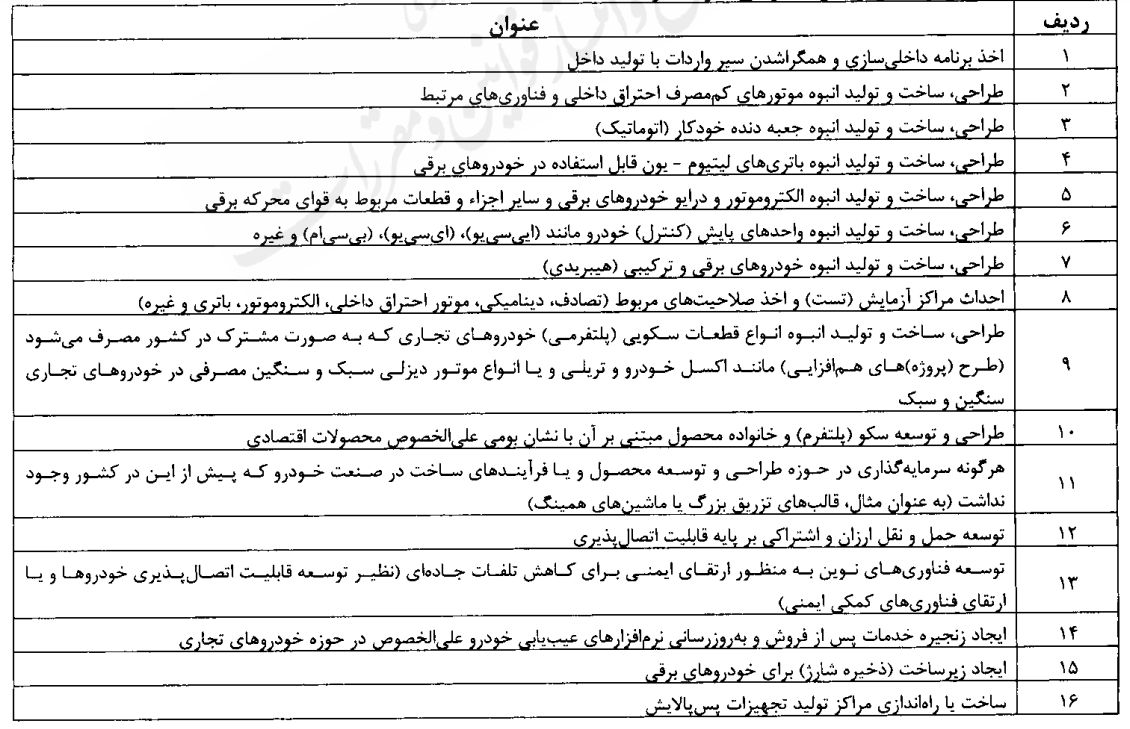 ردیف	عنوان
۱	اخذ برنامه داخلی‌سازی و همگراشدن سیر واردات با تولید داخل
۲	طراحی، ساخت و تولید انبوه موتورهای کم‌مصرف احتراق داخلی و فناوری‌های مرتبط
۳	طراحی، ساخت و تولید انبوه جعبه دنده خودکار (اتوماتیک)
۴	طراحی، ساخت و تولید انبوه باتری‌های لیتیوم - یون قابل استفاده در خودروهای برقی
۵	طراحی، ساخت و تولید انبوه الکتروموتور و درایو خودروهای برقی و سایر اجزاء و قطعات مربوط به قوای محرکه برقی
۶	طراحی، ساخت و تولید انبوه واحدهای پایش (کنترل) خودرو مانند (ایی‌سی‌یو)، (ای‌سی‌یو)، (بی‌سی‌ام) و غیره
۷	طراحی، ساخت و تولید انبوه خودروهای برقی و ترکیبی (هیبریدی)
۸	احداث مراکز آزمایش (تست) و اخذ صلاحیت‌های مربوط (تصادف، دینامیکی، موتور احتراق داخلی، الکتروموتور، باتری و غیره)
طراحی، ساخت و تولید انبوه انواع قطعات سکویی (پلتفرمی) خودروهای تجاری که به صورت مشترک در کشور مصرف می‌شود
۹	(طرح (پروژه)های هم‌افزایی) مانند اکسل خودرو و تریلی و یا انواع موتور دیزلی سبک و سنگین مصرفی در خودروهای تجاری
سنگین و سبک
۱۰	طراحی و توسعه سکو (پلتفرم) و خانواده محصول مبتنی بر آن با نشان بومی علی‌الخصوص محصولات اقتصادی
۱۱	هرگونه سرمایه‌گذاری در حوزه طراحی و توسعه محصول و یا فرآیندهای ساخت در صنعت خودرو که پیش از این در کشور وجود
نداشت (به عنوان مثال، قالب‌های تزریق بزرگ یا ماشین‌های همینگ)
۱۲	توسعه حمل و نقل ارزان و اشتراکی بر پایه قابلیت اتصال‌پذیری
۱۳	توسعه فناوری‌های نوین به منظور ارتقای ایمنی برای کاهش تلفات جاده‌ای (نظیر توسعه قابلیت اتصال‌پذیری خودروها و یا
ارتقای فناوری‌های کمکی ایمنی)
۱۴	ایجاد زنجیره خدمات پس از فروش و به‌روزرسانی نرم‌افزارهای عیب‌یابی خودرو علی‌الخصوص در حوزه خودروهای تجاری
۱۵	ایجاد زیرساخت (ذخیره شارژ) برای خودروهای برقی
۱۶	ساخت یا راه‌اندازی مراکز تولید تجهیزات پس‌پالایش